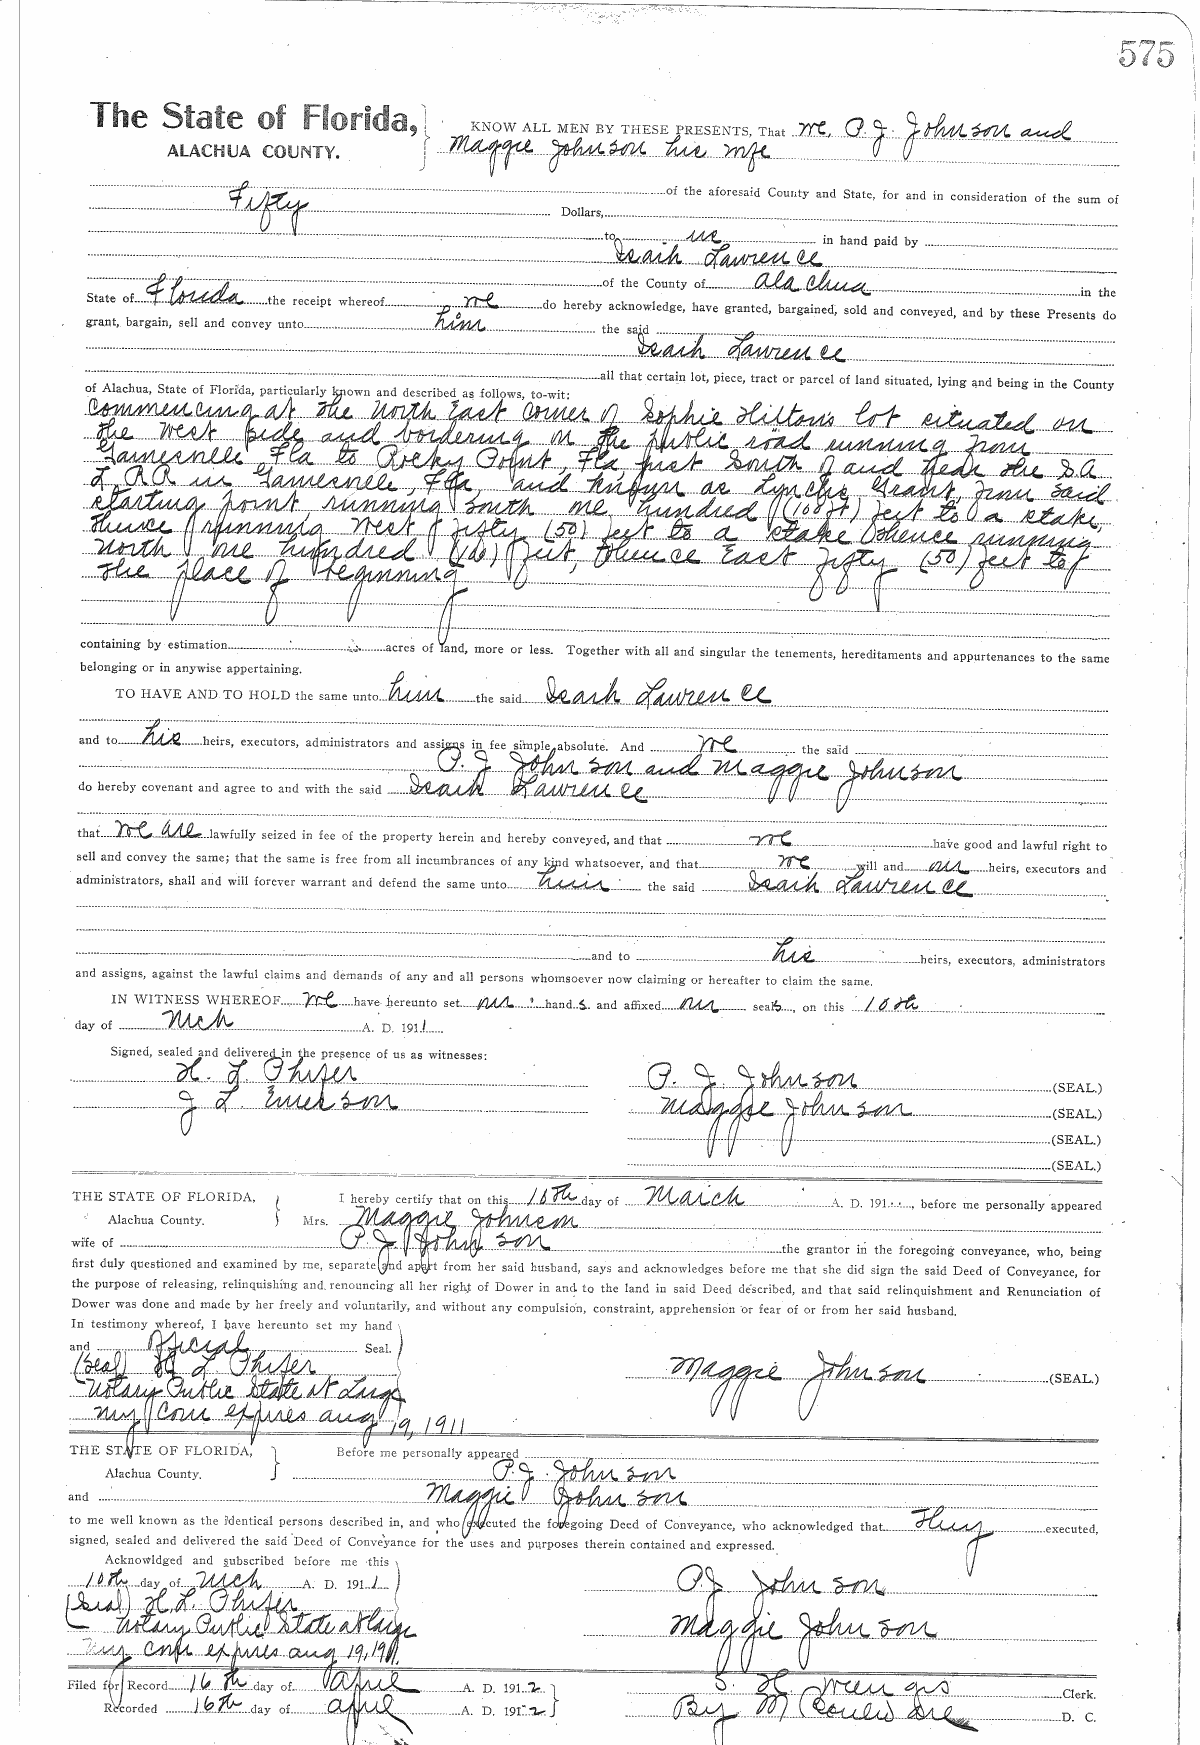 575
The State of Florida, KNOW ALL MEN BY THESE PRESENTS, That we, P. J. Johnson and
ALACHUA COUNTY. Maggie Johnson his wife
of the aforesaid County and State, for and in consideration of the sum of
Fifty Dollars,
to us in hand paid by
Isaih Lawrence
of the County of Alachua in the
State of Florida the receipt whereof we do hereby acknowledge, have granted, bargained, sold and conveyed, and by these Presents do
grant, bargain, sell and convey unto him the said
Isaih Lawrence
all that certain lot, piece, tract or parcel of land situated, lying and being in the County
of Alachua, State of Florida, particularly known and described as follows, to-wit:
Commencing at the North East corner of Sophie Hilton's lot situated on
the West side and bordering on the public road running from
Gainesville Fla to Rocky Point, Fla just South of and near the S.A.
L. RR in Gainesville, Fla, and known as Lynchs Grant, from said
starting point running South one hundred (100 ft) feet to a stake,
thence running West fifty (50) feet to a stake thence running
North one hundred (100) feet, thence East fifty (50) feet to
the place of beginning
containing by estimation acres of land, more or less. Together with all and singular the tenements, hereditaments and appurtenances to the same
belonging or in anywise appertaining.
TO HAVE AND TO HOLD the same unto him the said Isaih Lawrence
and to his heirs, executors, administrators and assigns in fee simple absolute. And we the said
P. J Johnson and Maggie Johnson
do hereby covenant and agree to and with the said Isaih Lawrence
that we are lawfully seized in fee of the property herein and hereby conveyed, and that we have good and lawful right to
sell and convey the same; that the same is free from all incumbrances of any kind whatsoever, and that we will and our heirs, executors and
administrators, shall and will forever warrant and defend the same unto him the said Isaih Lawrence
and to his heirs, executors, administrators
and assigns, against the lawful claims and demands of any and all persons whomsoever now claiming or hereafter to claim the same.
IN WITNESS WHEREOF we have hereunto set our hands and affixed our seals, on this 10th
day of Mch A. D. 1911
Signed, sealed and delivered in the presence of us as witnesses:
H. L. Phifer P. J. Johnson (SEAL.)
J L. Emerson Maggie Johnson (SEAL.)
(SEAL.)
(SEAL.)
THE STATE OF FLORIDA, I hereby certify that on this 10th day of March A. D. 191 , before me personally appeared
Alachua County. Mrs. Maggie Johnson
wife of P. J. Johnson the grantor in the foregoing conveyance, who, being
first duly questioned and examined by me, separate and apart from her said husband, says and acknowledges before me that she did sign the said Deed of Conveyance, for
the purpose of releasing, relinquishing and renouncing all her right of Dower in and to the land in said Deed described, and that said relinquishment and Renunciation of
Dower was done and made by her freely and voluntarily, and without any compulsion, constraint, apprehension or fear of or from her said husband.
In testimony whereof, I have hereunto set my hand
and official Seal.
(Seal) H L Phifer Maggie Johnson (SEAL.)
Notary Public State at Large
My Com expires Aug 19, 1911
THE STATE OF FLORIDA, Before me personally appeared
Alachua County. P. J. Johnson
and Maggie Johnson
to me well known as the identical persons described in, and who executed the foregoing Deed of Conveyance, who acknowledged that they executed,
signed, sealed and delivered the said Deed of Conveyance for the uses and purposes therein contained and expressed.
Acknowldged and subscribed before me this
10th day of Mch A. D. 1911 P.J. Johnson
(Seal) H. L. Phifer
Notary Public State at Large Maggie Johnson
My Com expires Aug 19, 1911.
Filed for Record 16th day of April A. D. 1912 S. H. Wienges Clerk.
Recorded 16th day of April A. D. 1912 By M D. C.